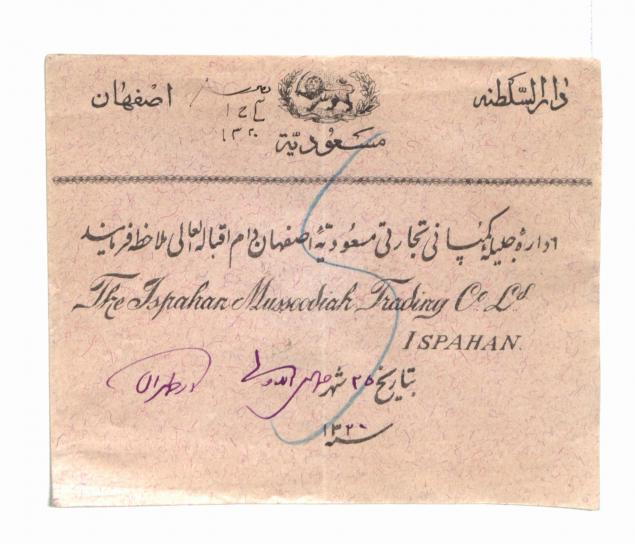 دارالسّلطنه اصفهان
۱۳۲۰
مسعودیّة
اداره جلیله کمپانی تجارتی مسعودیهٔ اصفهان دام اقباله العالی ملاحظه فرمایند
The Ispahan Mussoodiah Trading Co. Ld.
ISPAHAN.
بتاریخ ۲۵ شهر
سنه ۱۳۲۰